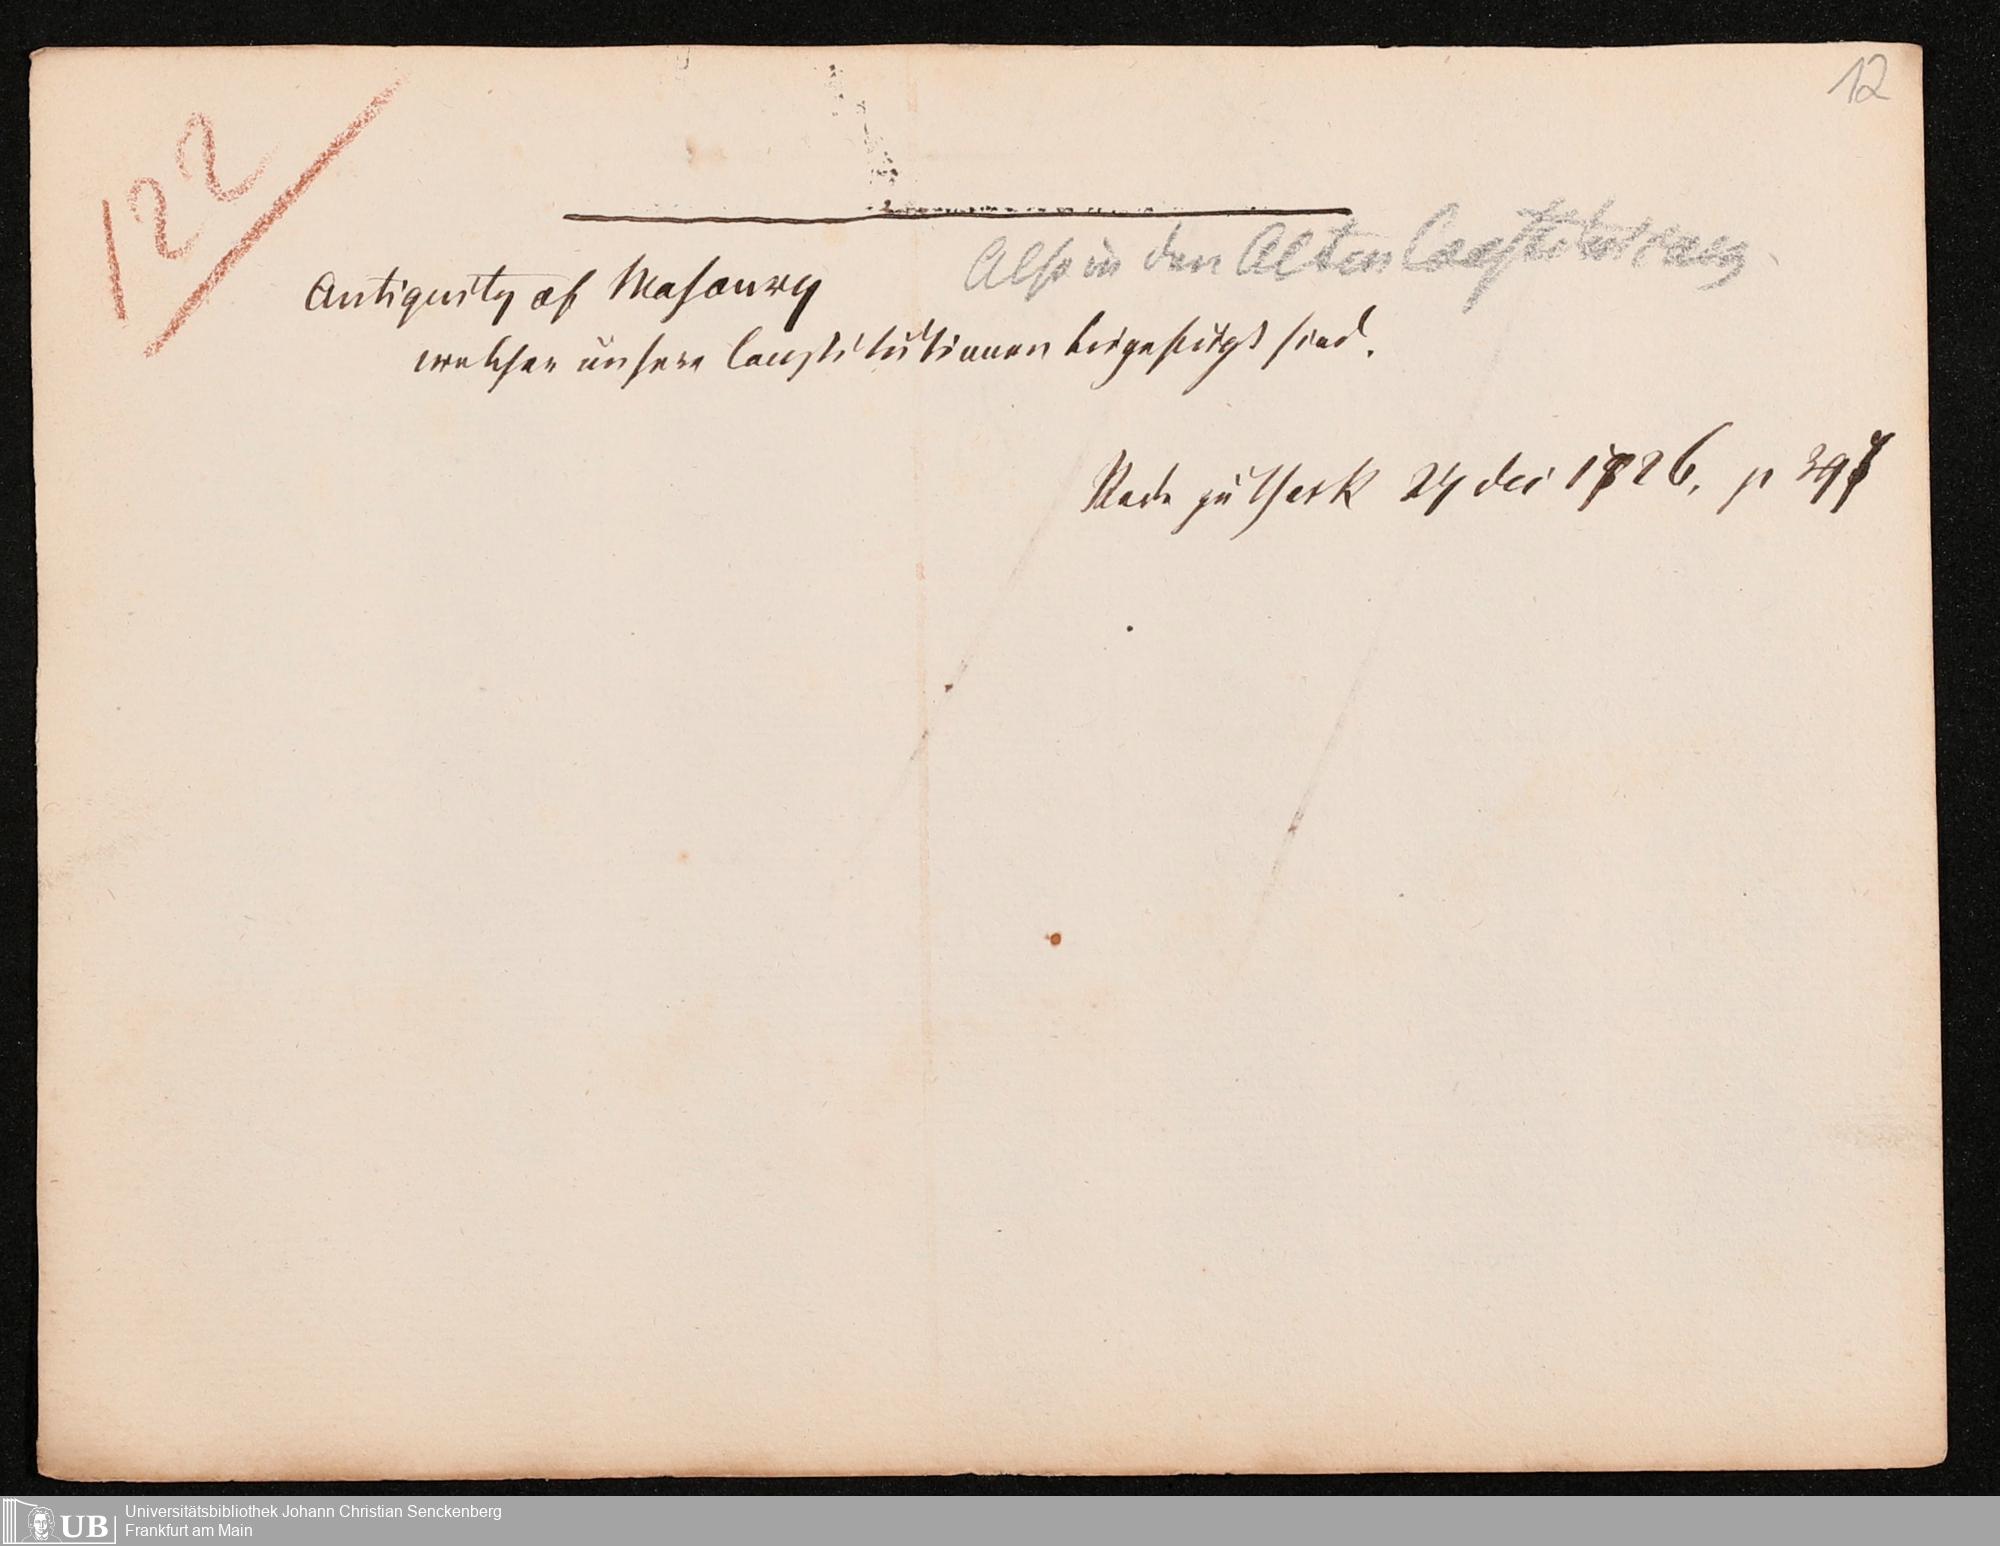 12
122
Also in den Alten Constitutionen
Antiquity of Masonry
welchen unsere Constitutionen beigefügt sind.
Rede zu York 27 dec 1726, p
Universitätsbibliothek Johann Christian Senckenberg
Frankfurt am Main
UB